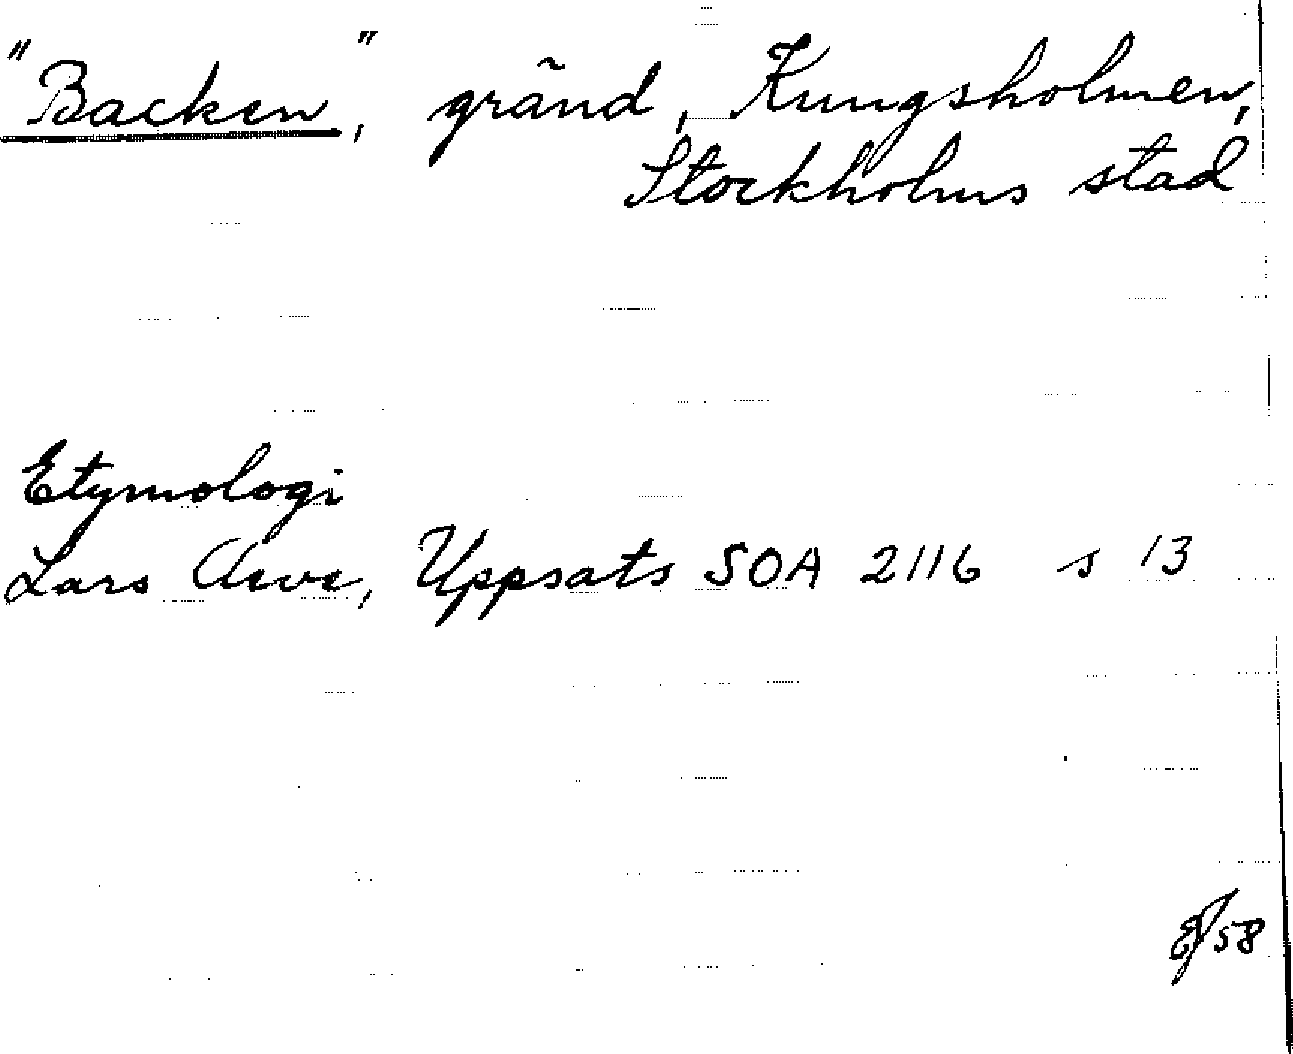 "Backen", gränd, Kungsholmen,
Stockholms stad
Etymologi
Lars Arve, Uppsats SOA 2116 s 13
58